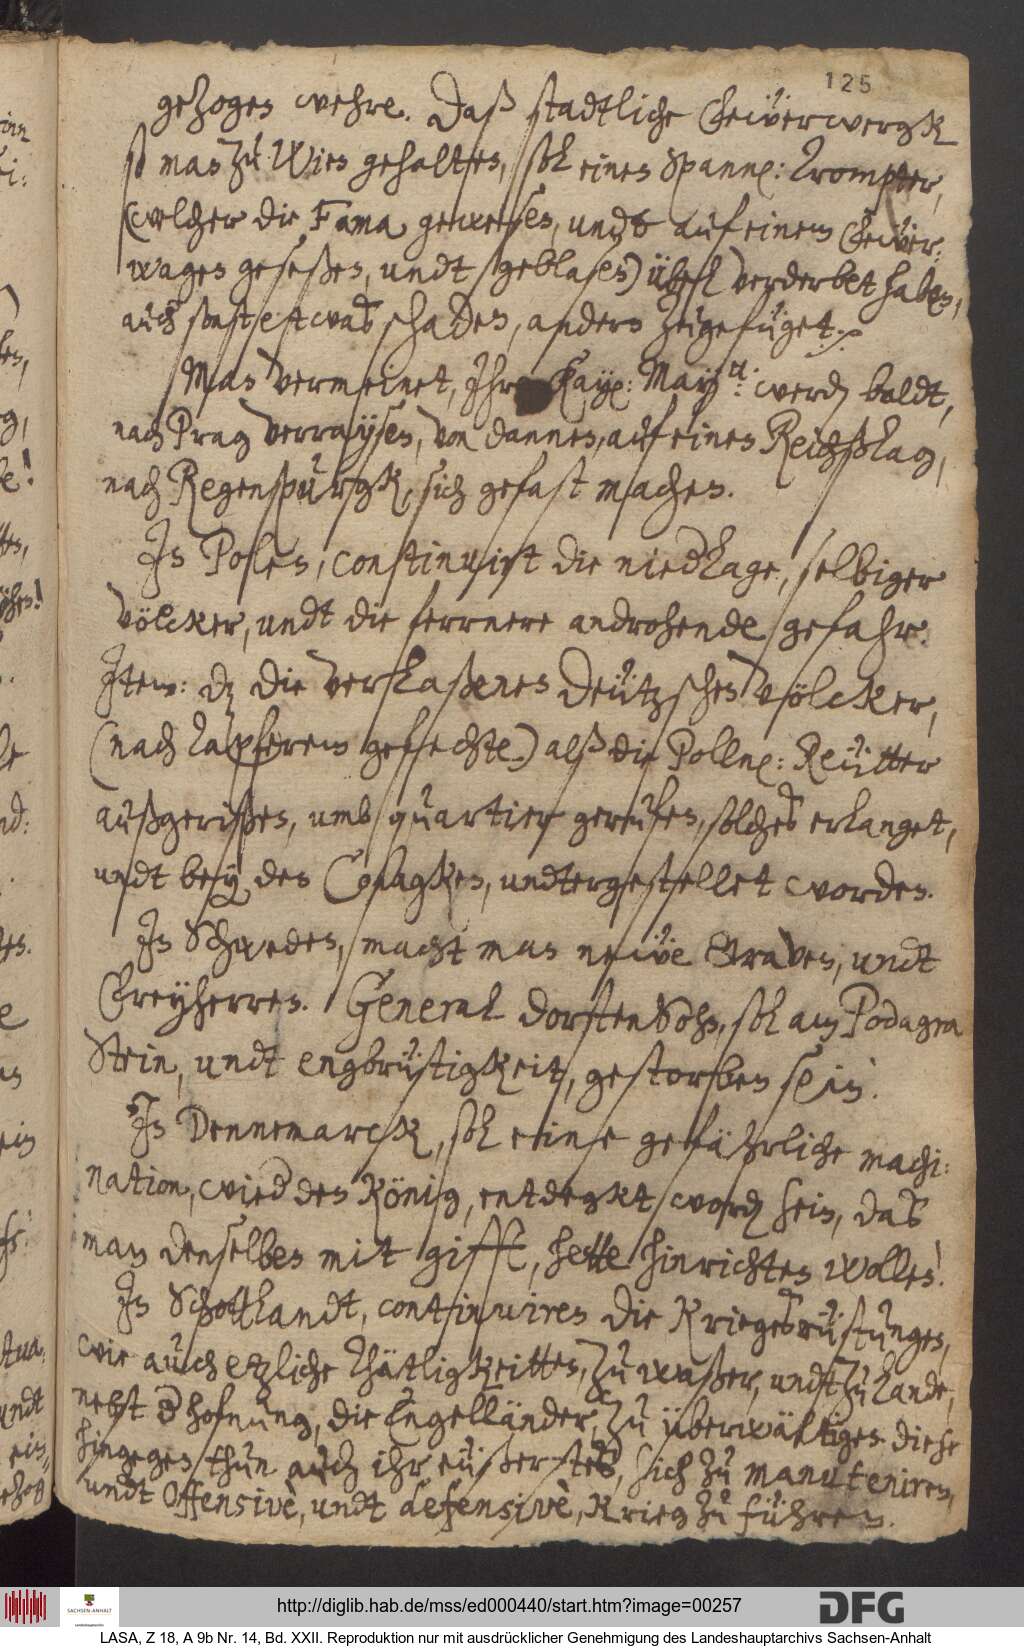 125
gezogen wehre. Daß stadtliche Feüerwergk
so man zu Wien gehalten, sol einen Spann: Trompter,
(welcher die Fama gewesen, undt auf einem Feüer:
wagen geseßen, undt geblasen) übel verderbet haben,
auch sonst etwaß schaden, andern zugefüget.
Man vermeinet, Ihre Kay: May:t: werdn baldt,
nach Prag verraysen, von dannen, auf einen Reichßtag,
nach Regenspurgk, sich gefast machen.
In Polen, continuirt die niederlage, selbiger
völcker, undt die fernere androhende gefahr.
Item: dz die verlaßenen Deützschen völcker,
(nach tapferem gefechte) alß die Polln: Reütter
außgerißen, umb quartier gerufen, solches erlanget,
undt bey den Cosagken, undtergestellet worden.
In Schweden, macht man neüe Graven, undt
Freyherren. General Dorstensohn, sol am Podagra
Stein, undt engbrüstigkeit, gestorben sein.
In Dennemarck, sol eine gefährliche machi:
nation, wieder den König, entdegkt wordn sein, das
man denselben mit gifft, hette hinrichten wollen.
In Schottlandt, continuiren die Kriegesrüstungen,
wie auch etzliche thätligkeitten, zu waßer, undt zu lande,
nebst der hofnung, die Engelländer, zu überwältigen diese
hingegen thun auch ihr eüßerstes, sich zu manuteniren,
undt offensivè, undt defensivè, Krieg zu führen.
http://diglib.hab.de/mss/ed000440/start.htm?image=00257
SACHSEN-ANHALT
DFG
LASA, Z 18, A 9b Nr. 14, Bd. XXII. Reproduktion nur mit ausdrücklicher Genehmigung des Landeshauptarchivs Sachsen-Anhalt